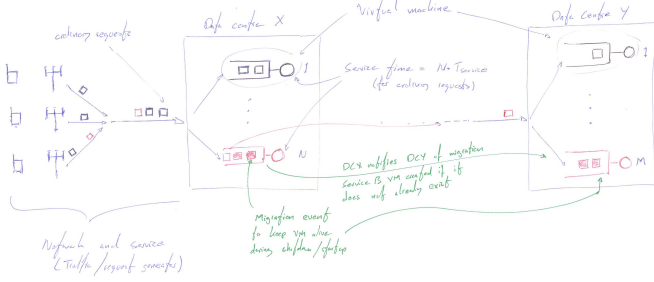 Data centre X
Virtual machine
Data centre Y
ordinary requests
1
1
Service time = N₀ Tservice
(for ordinary requests)
N
M
DCX notifies DCY of migration
Service B VM created if it
does not already exist
Migration event
to keep VM alive
during shutdown/startup
Network and service
(Traffic/request generator)